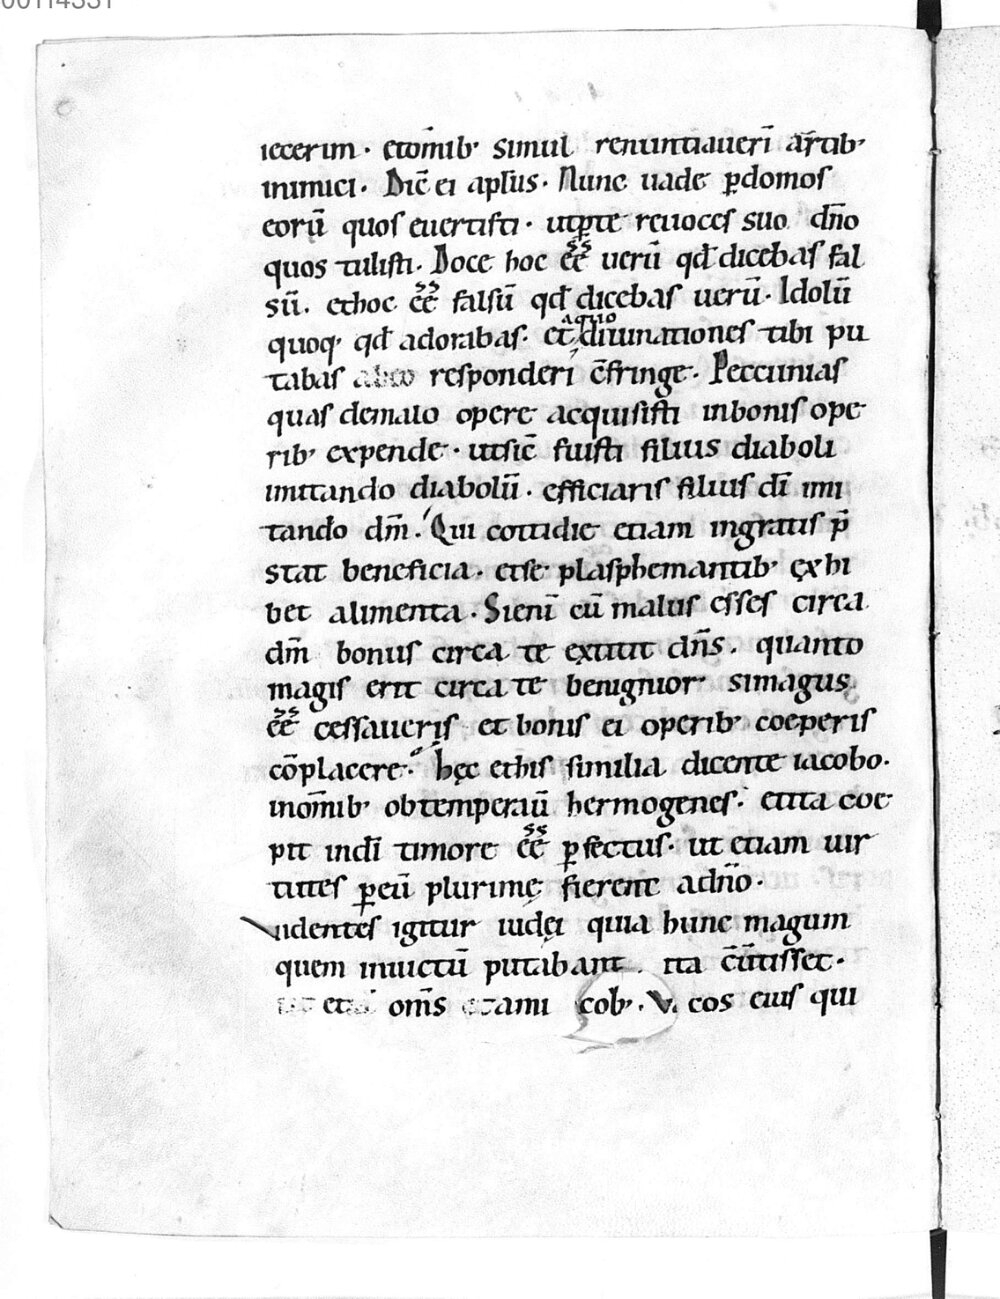 00114331
iecerim · etom̄ib' simul renuntiauerī ar̄tib'
inimici · Dic̄ ei apl̄us · Nunc uade p̱domos
eorū quos euertisti · utp̱te reuoces suo dn̄o
quos tulisti · Doce hoc ēē uerū qd̄ dicebas fal
sū . ethoc ēē falsū qd̄ dicebas uerū · Idolū
quoq' qd̄ adorabas · et aquo diuinationes tibi pu
tabas responderi c̄fringe · Peccunias
quas demalo opere acquisisti inbonis ope
rib' expende · utsic̄ fuisti filius diaboli
imitando diabolū · efficiaris filius dī imi
tando dm̄ . Qui cottidie etiam ingratis p̄
stat beneficia · etse plasphemantib' ęxhi
bet alimenta · Sienī cū malus esses circa
dm̄ bonus circa te extitit dn̄s . quanto
magis erit circa te benignior simagus
ēē cessaueris et bonis ei operib' coeperis
cōplacere · hęc ethis similia dicente iacobo .
inom̄ib' obtemperauū hermogenes · etita coe
pit indī timore ēē p̱fectus · ut etiam uir
tutes p̱eū plurimę fierent adn̄o ·
uidentes igitur iudęi quia hunc magum
quem inuictū putabant . ita c̄ūtisset ·
om̄s ami cob' . V . cos eius qui